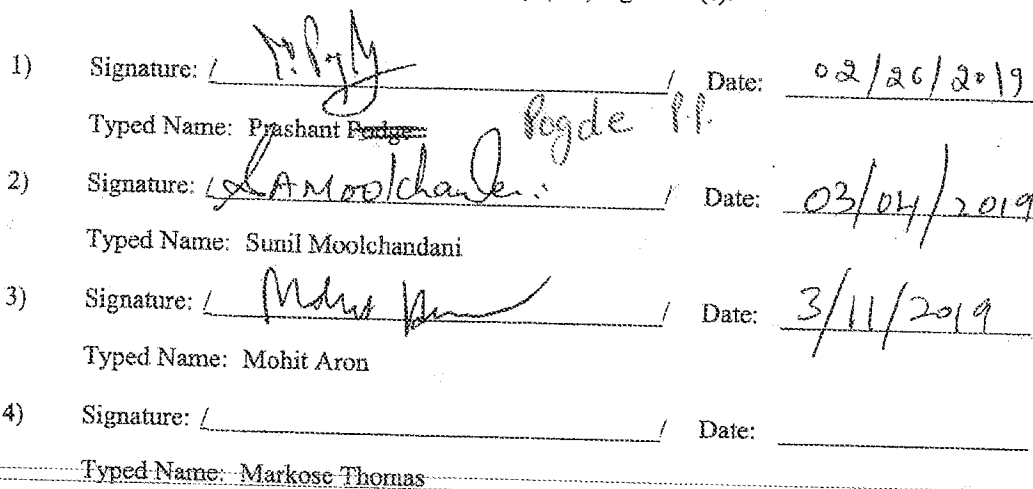 1) Signature: / P. Pgly / Date: 02/26/2019
Typed Name: Prashant Podge Pogde P.P.
2) Signature: / SAMoolchandani / Date: 03/04/2019
Typed Name: Sunil Moolchandani
3) Signature: / / Date: 3/11/2019
Typed Name: Mohit Aron
4) Signature: / / Date:
Typed Name: Markose Thomas